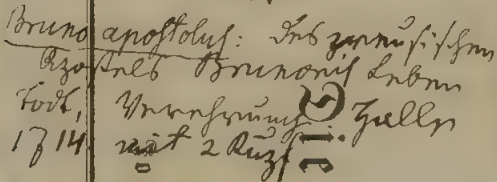 Bruno apostolus: Des preusischen
Apostels Brunonis Leben
Todt, Verehrung Halle
1714 mit 2 Kupf